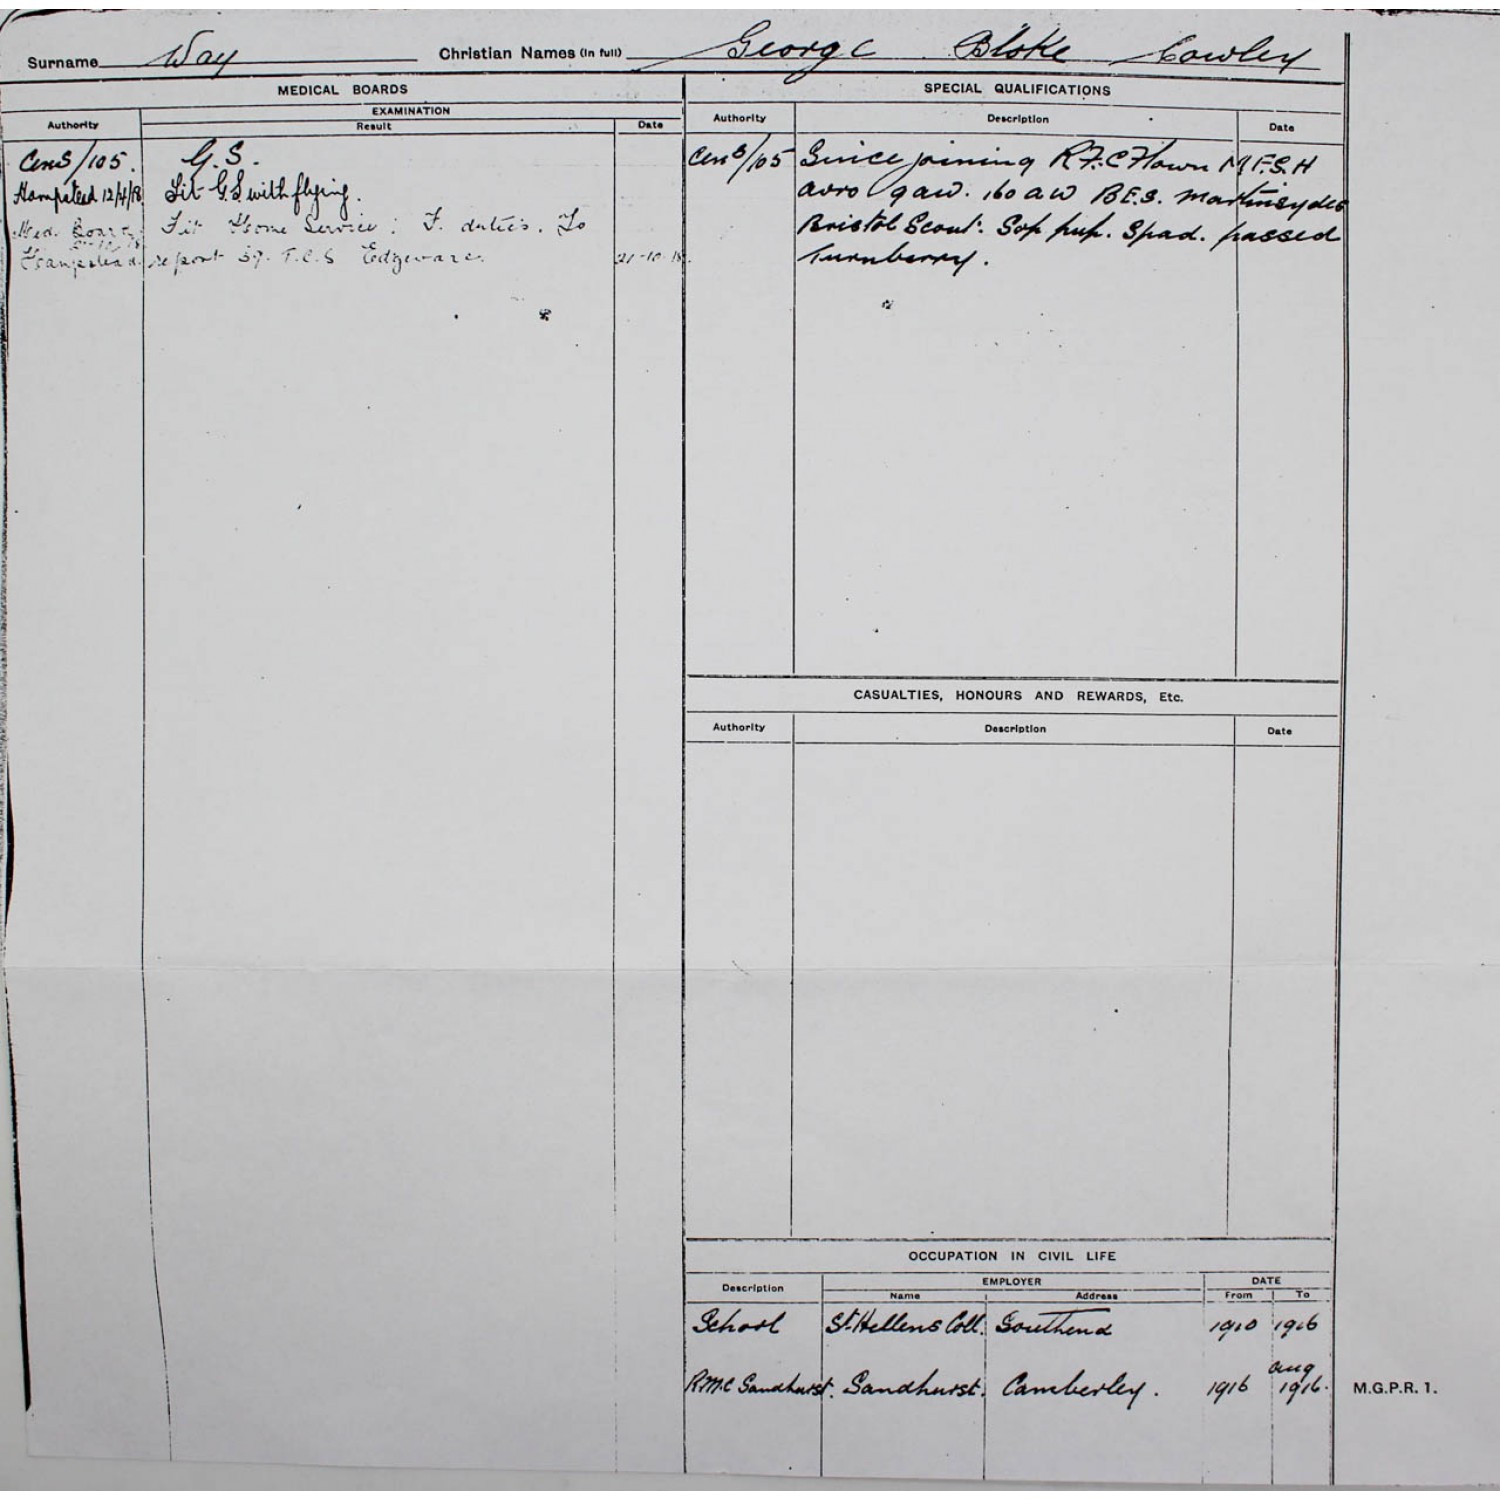 Surname Way Christian Names (in full) George Bloke Cowley
MEDICAL BOARDS
EXAMINATION
Authority Result Date
Cens/105. G.S.
Hampstead 12/4/18 Fit G.S with flying.
Med. Board Fit Home Service: F. duties. To
Hampstead report 39. T.D.S Edgeware. 21-10-18.
SPECIAL QUALIFICATIONS
Authority Description Date
Cens/105 Since joining R.F.C Flown M.F.S.H
avro 9 a w. 160 a w B.E.S. Martinsydes
Bristol Scout. Sop pup. Spad. passed
Turnberry.
CASUALTIES, HONOURS AND REWARDS, Etc.
Authority Description Date
OCCUPATION IN CIVIL LIFE
Description EMPLOYER DATE
Name Address From To
School St. Hellens Coll. Southend 1910 1916
R.M.C Sandhurst. Sandhurst. Camberley. 1916 aug 1916.
M.G.P.R. 1.